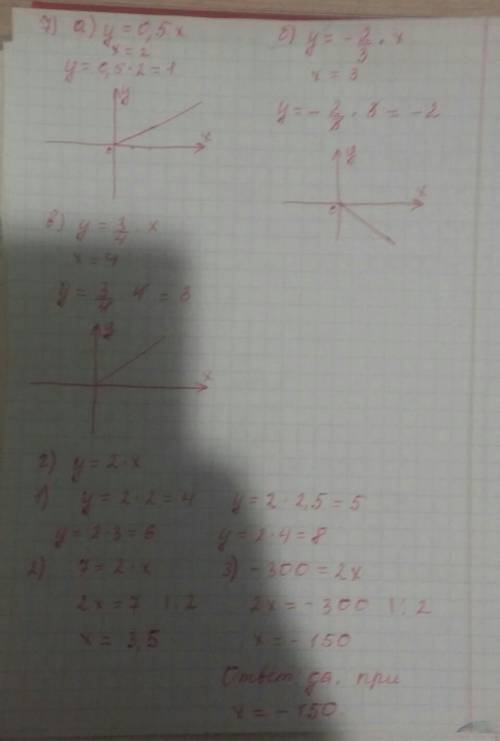 7) а) y = 0,5x
x = 2
y = 0,5 · 2 = 1
y
x
0
б) y = -2/3 · x
x = 3
y = -2/3 · 3 = -2
y
x
0
в) y = 3/4 x
x = 4
y = 3/4 · 4 = 3
y
x
2) y = 2 · x
1) y = 2 · 2 = 4 y = 2 · 2,5 = 5
y = 2 · 3 = 6 y = 2 · 4 = 8
2) 7 = 2 · x
2x = 7 |:2
x = 3,5
3) -300 = 2x
2x = -300 |:2
x = -150
Ответ да, при
x = -150.